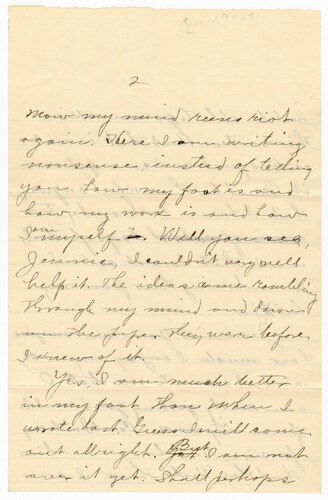 2
Mow my mind runs riot
again. Here I am writing
nonsense, instead of telling
you how my foot is and
how my work is and how
am
I myself is. Well you see,
Jennie, I couldn't very well
help it. The ideas came rambling
through my mind and down
on the paper they were before
I knew of it.
Yes, I am much better
in my foot than when I
wrote last. Guess I will come
out allright. But I am not
over it yet. Shall perhaps